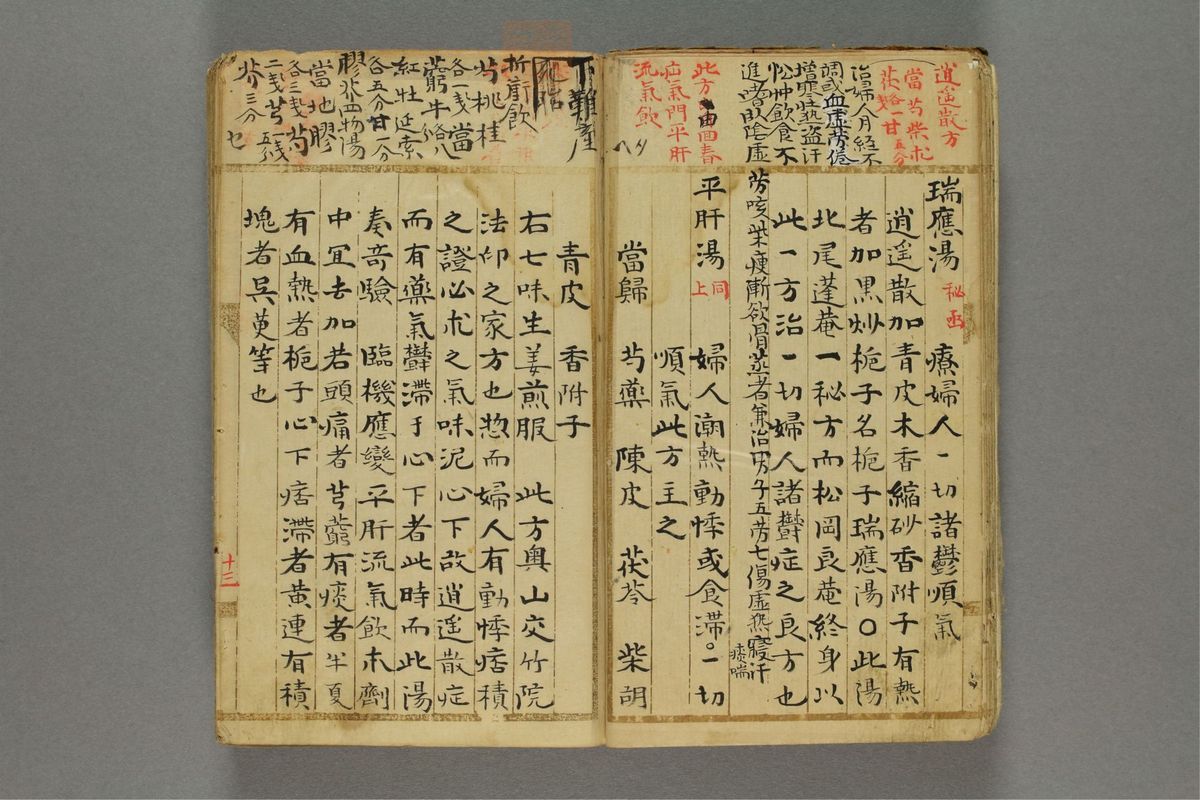 逍遥散方
當芍柴朮
茯各一甘五分
治婦人月経不
調或血虚労倦
増寒熱盗汗
忪忡飲食不
進嗜臥陰虚
労咳柴痩漸欲骨蒸者兼治男子五労七傷虚熱寝汗
痰喘
此方酉春
疝氣門平肝
流氣飲
瑞應湯 秘函 療婦人一切諸鬱順氣
逍遥散加青皮木香縮砂香附子有熱
者加黒炒梔子名梔子瑞應湯〇此湯
北尾蓬菴一秘方而松岡良菴終身以
此一方治一切婦人諸鬱症之良方也
平肝湯 同上 婦人潮熱動悸或食滞。一切
順氣此方主之
當歸 芍藥 陳皮 茯苓 柴胡
下難産
折前飲
芍桃桂
各一戔當
藭牛各八
紅牡延索
各五分甘一分
膠艾四物湯
當地膠
各三戔芍
二戔芎一戔五分
艾三分也
青皮 香附子
右七味生姜煎服 此方奥山交竹院
法印之家方也惣而婦人有動悸痞積
之證必求之氣味泥心下故逍遥散症
而有藥氣鬱滞于心下者此時而此湯
奏奇驗 臨機應變平肝流氣飲末劑
中宜去加若頭痛者芎藭有痰者半夏
有血熱者梔子心下痞滞者黄連有積
塊者呉茰等也
十三